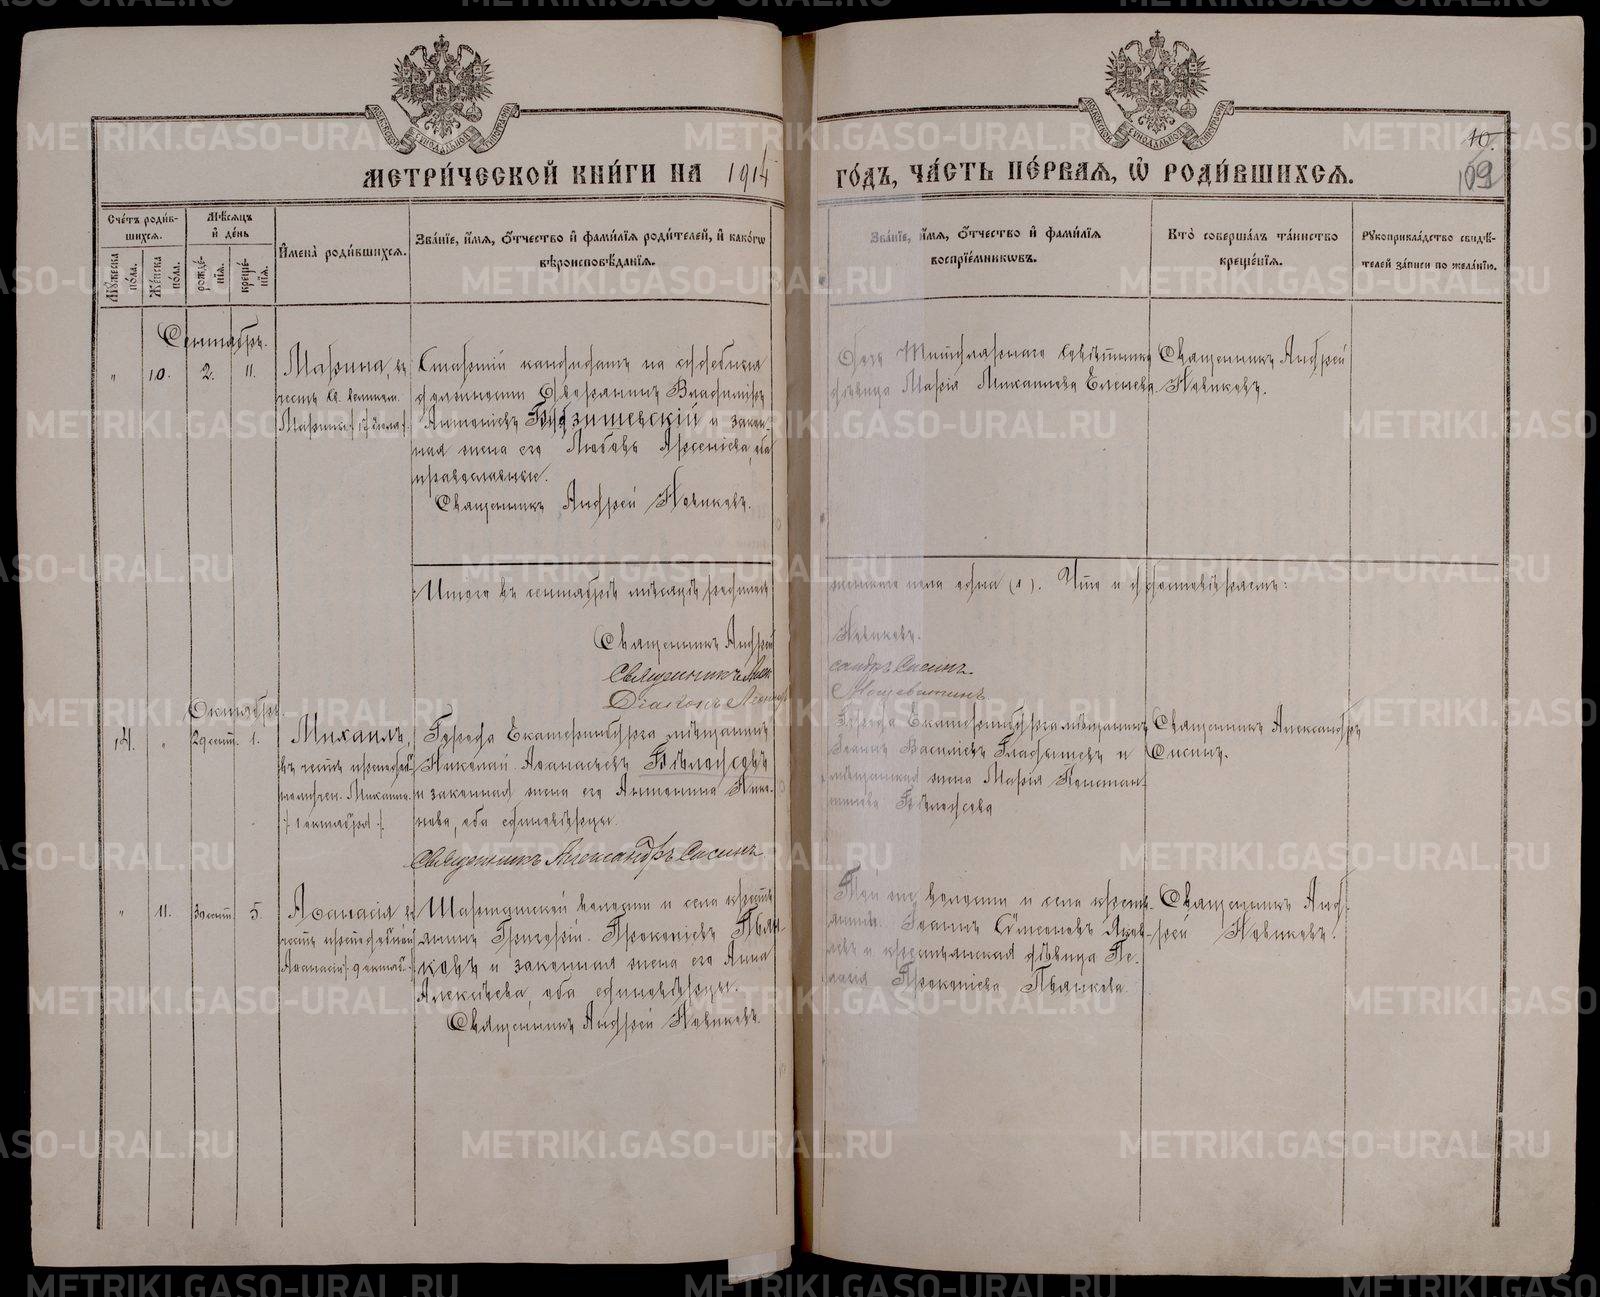 МЕТРИ́ЧЕСКОЙ КНИ́ГИ НА 1914 ГО́ДЪ, ЧА́СТЬ ПЕ́РВАЯ, Ѡ҆ РОДИ́ВШИХСЯ.
10.
109
Сче́тъ роди́в-
шихся.
Мѣ́сяцъ
и҆ де́нь
Му́жеска
по́ла.
Же́нска
по́ла.
рожде́-
нїя.
креще́-
нїя.
И҆мена̀ роди́вшихся.
Зва́нїе, и҆́мя, ѻ҆́тчество и҆ фами́лїя роди́телей, и҆ како́гѡ
вѣроисповѣ́данїя.
Зва́нїе, и҆́мя, ѻ҆́тчество и҆ фами́лїя
воспрїе́мникѡвъ.
Кто̀ соверша́лъ та́инство
креще́нїя.
Рꙋкоприкла́дство свидѣ́-
телей за́писи по жела́нїю.
Сентябрь.
" 10. 2. 11.
Марина, въ
честь св. великом.
Марины /: 17 Июля :/
Старшій кандидатъ на судебныя
должности Дворянинъ Владиміръ
Антоніевъ зишевскій и закон-
ная жена его Любовь Арсеніева, оба
православные.
Священникъ Андрей Новиковъ.
Дочь Титулярнаго Совѣтника
дѣвица Марія Михаилова Еленева
Священникъ Андрей
Новиковъ.
Итого въ сентябрѣ мѣсяцѣ родилось
женскаго пола одна (1). Что и удостовѣряемъ:
Священникъ Андрей
Новиковъ.
Священникъ Алек
сандръ Сисинъ
Діаконъ
Октябрь.
14. " 29 сент. 1.
Михаилъ,
въ честь преподоб.
Михаила
/: 1 октября :/
Города Екатеринбурга мѣщанинъ
Николай Аѳанасьевъ Бѣлоусовъ
и законная жена его Антонина Нико-
лаева, оба единовѣрцы.
Священникъ Александръ Сисинъ
Города Екатеринбурга мѣщанинъ
Іоаннъ Василіевъ Гладышевъ и
мѣщанская жена Марія Констан-
тинова Бѣлоусова
Священникъ Александръ
Сисинъ.
" 11. 30 сент. 5.
Аѳанасія въ
честь преподобной
Аѳанасіи /: 9 октяб. :/
Шарташской волости и села кресть-
янинъ Григорій Прокопіевъ Пьян-
ковъ и законная жена его Анна
Алексѣева, оба единовѣрцы.
Священникъ Андрей Новиковъ.
Той же волости и села кресть-
янинъ Іоаннъ Сѵмеоновъ Яков-
левъ и крестьянская дѣвица Пе-
лагія Прокопіева Пьянкова.
Священникъ Анд-
рей Новиковъ.
METRIKI.GASO-URAL.RU